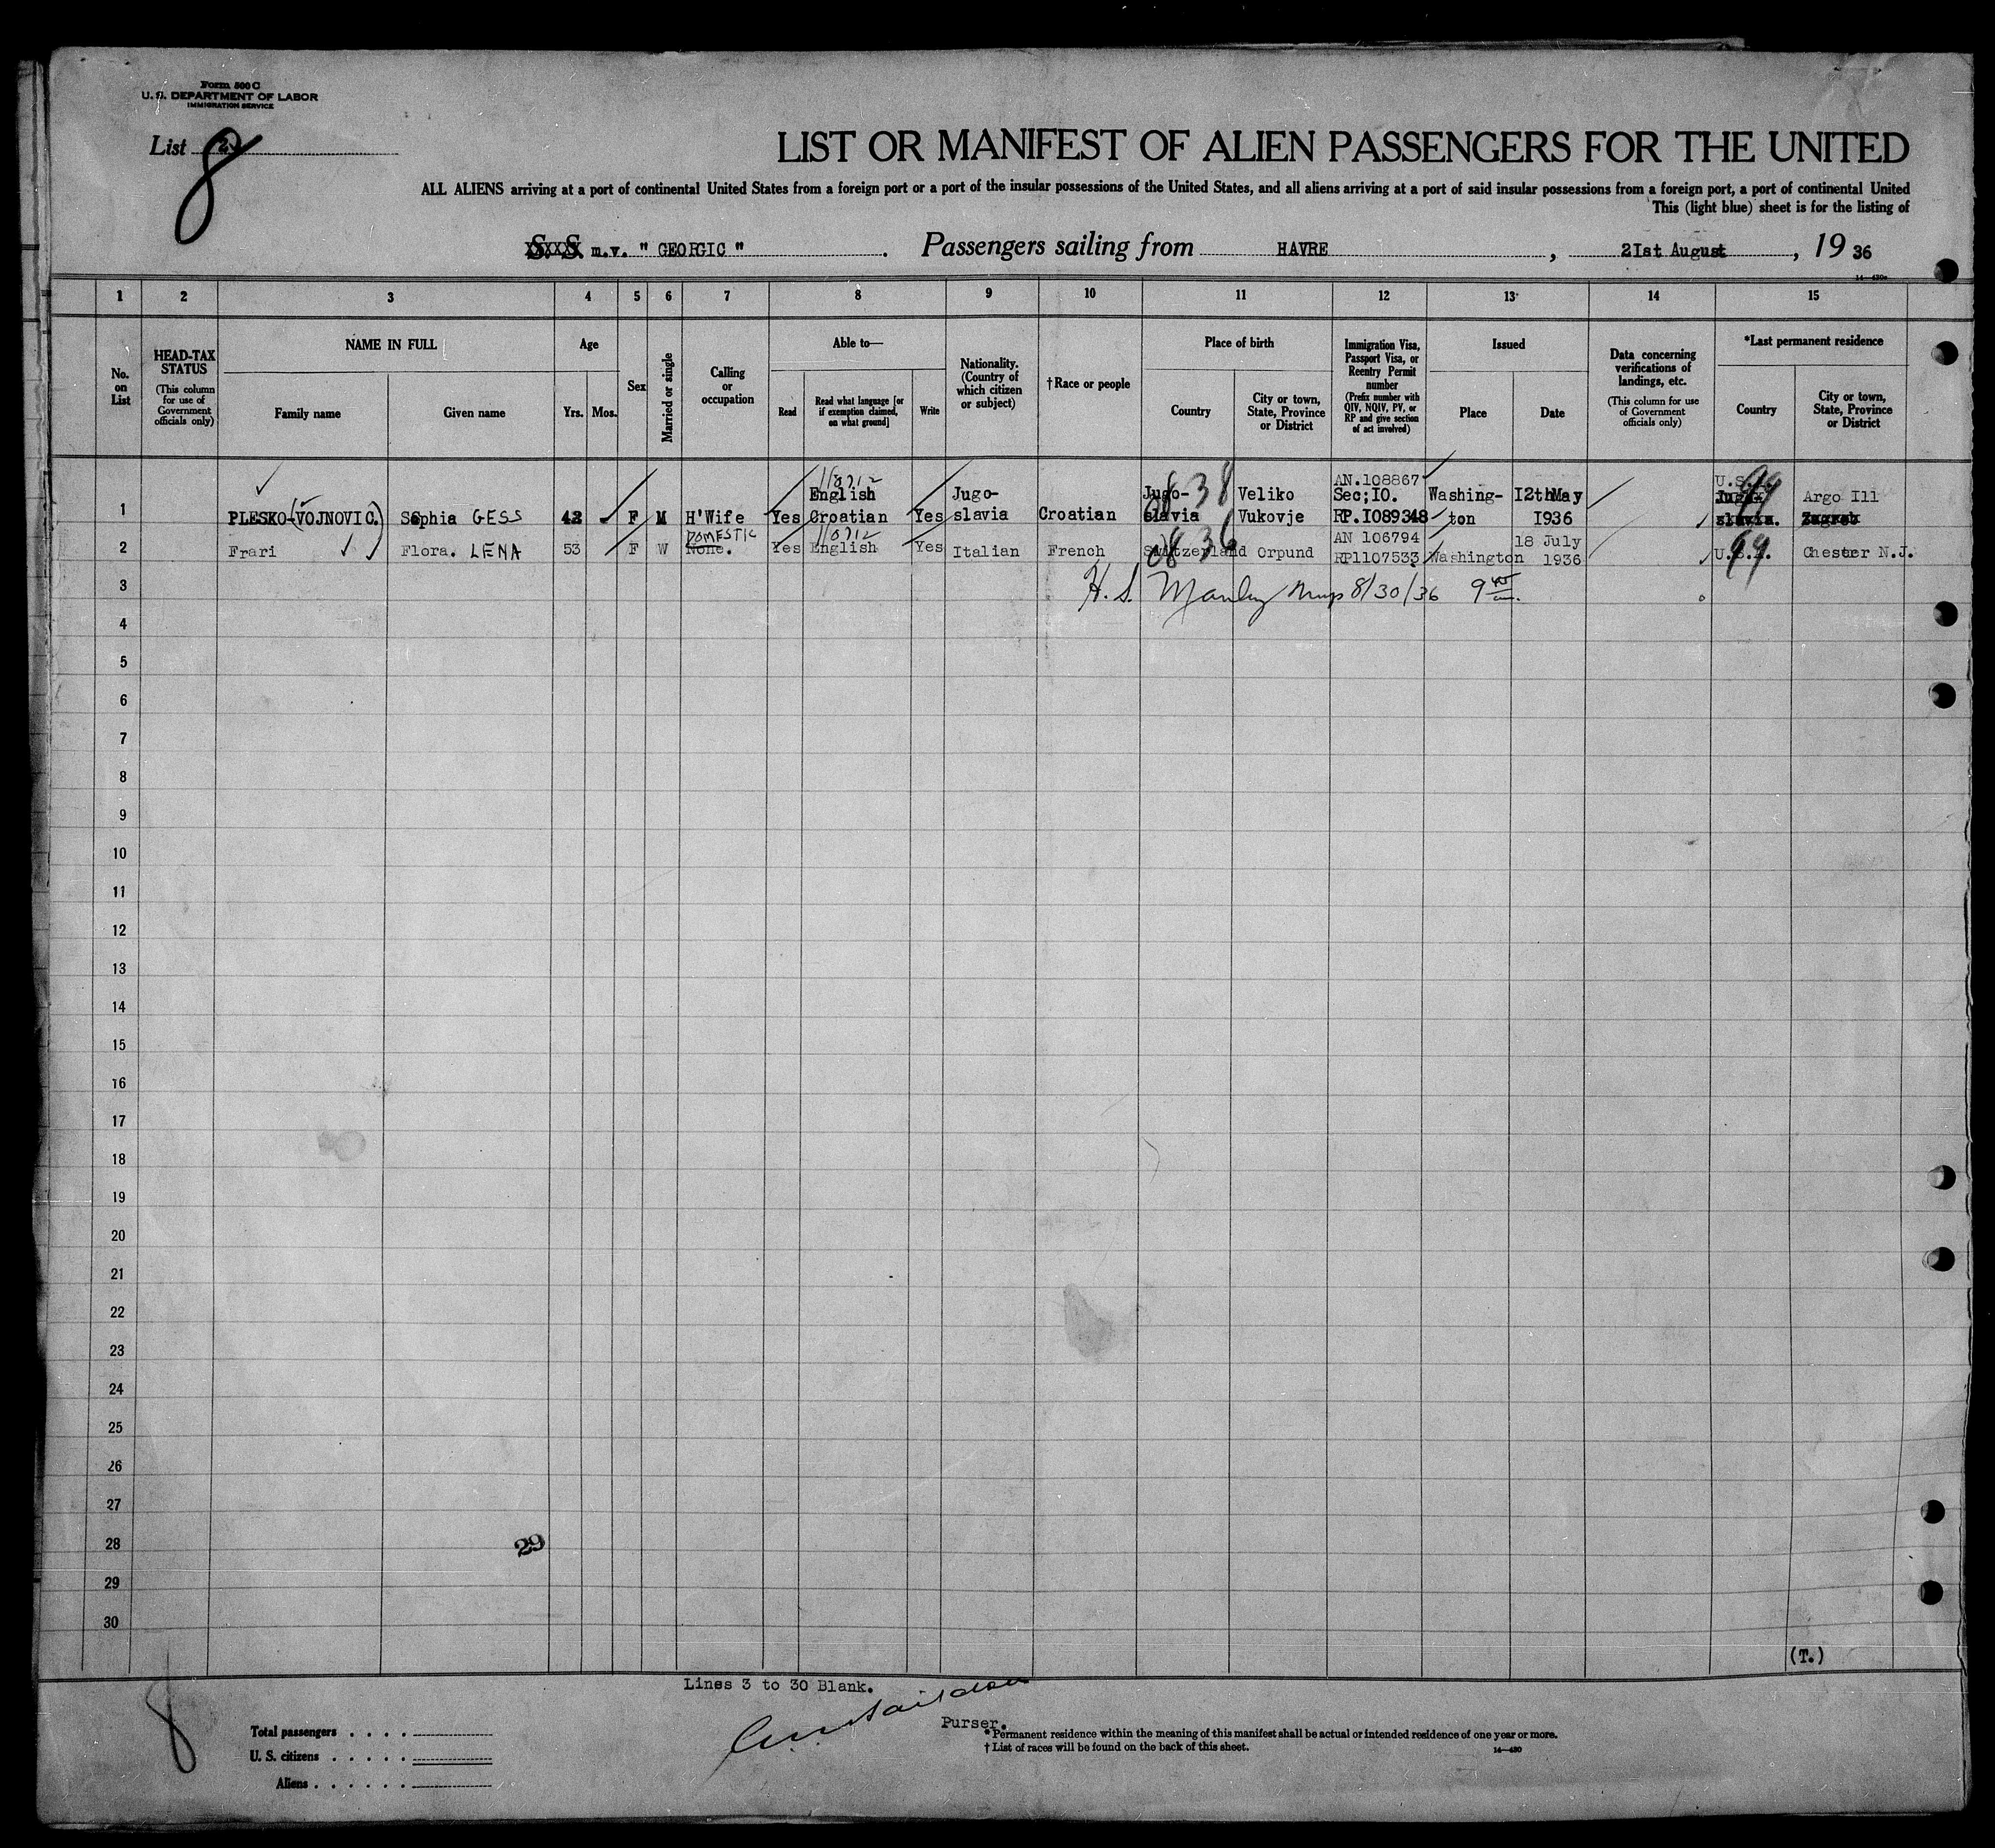 Form 500 C
U. S. DEPARTMENT OF LABOR
IMMIGRATION SERVICE
List 2
8
LIST OR MANIFEST OF ALIEN PASSENGERS FOR THE UNITED
ALL ALIENS arriving at a port of continental United States from a foreign port or a port of the insular possessions of the United States, and all aliens arriving at a port of said insular possessions from a foreign port, a port of continental United
This (light blue) sheet is for the listing of
S. S. m.v. " GEORGIC " . Passengers sailing from HAVRE , 2Ist August , 19 36
1 2 3 4 5 6 7 8 9 10 11 12 13 14 15
No. on List
HEAD-TAX STATUS
(This column for use of Government officials only)
NAME IN FULL
Family name
Given name
Age
Yrs.
Mos.
Sex
Married or single
Calling or occupation
Able to—
Read
Read what language [or if exemption claimed, on what ground]
Write
Nationality. (Country of which citizen or subject)
†Race or people
Place of birth
Country
City or town, State, Province or District
Immigration Visa, Passport Visa, or Reentry Permit number
(Prefix number with QIV, NQIV, PV, or RP and give section of act involved)
Issued
Place
Date
Data concerning verifications of landings, etc.
(This column for use of Government officials only)
*Last permanent residence
Country
City or town, State, Province or District
English Jugo- Jugo- 38 Veliko AN.108867 Sec;IO. Washing- I2thMay U.S.A. 99 Jugo- Argo Ill
1 PLESKO-(VOJNOVIC.) Sophia GESS 42 F M H'Wife Yes Croatian Yes slavia Croatian slavia Vukovje RP.I089348 ton I936 slavia. Zagreb
DOMESTIC 36 AN 106794 18 July
2 Frari Flora. LENA 53 F W None. Yes English Yes Italian French Switzerland Orpund RP1107533 Washington 1936 U.S.A. 99 Chester N.J.
3 H. S. 8/30/36 9 45
4
5
6
7
8
9
10
11
12
13
14
15
16
17
18
19
20
21
22
23
24
25
26
27
28 29
29
30
(T.)
Lines 3 to 30 Blank.
8
Purser.
Total passengers . . . .
U. S. citizens . . . . .
Aliens . . . . . .
* Permanent residence within the meaning of this manifest shall be actual or intended residence of one year or more.
† List of races will be found on the back of this sheet.
14—430